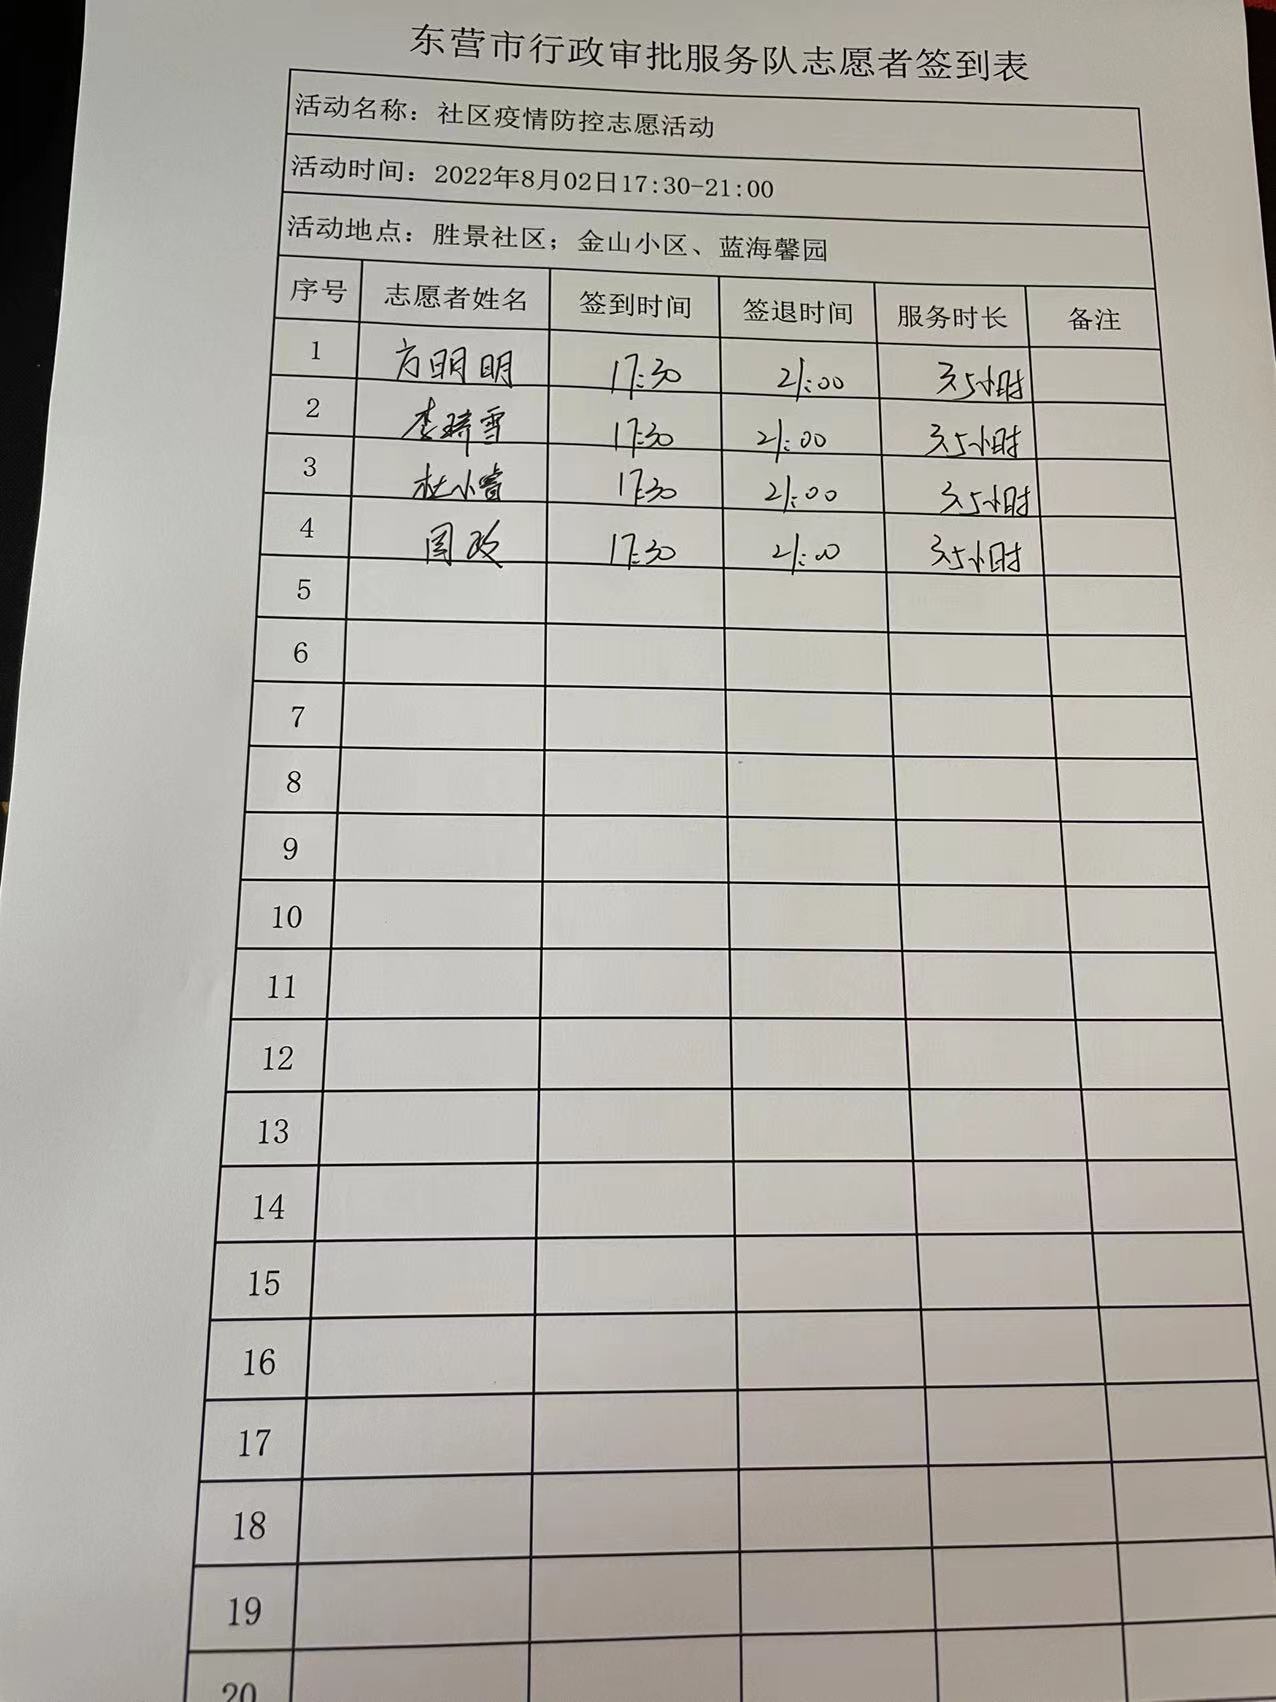 东营市行政审批服务队志愿者签到表
活动名称：社区疫情防控志愿活动
活动时间：2022年8月02日17:30-21:00
活动地点：胜景社区；金山小区、蓝海馨园
序号 志愿者姓名 签到时间 签退时间 服务时长 备注
1 方明明 17:30 21:00 3.5小时
2 李琦雪 17:30 21:00 3.5小时
3 杜小睿 17:30 21:00 3.5小时
4 17:30 21:00 3.5小时
5
6
7
8
9
10
11
12
13
14
15
16
17
18
19
20